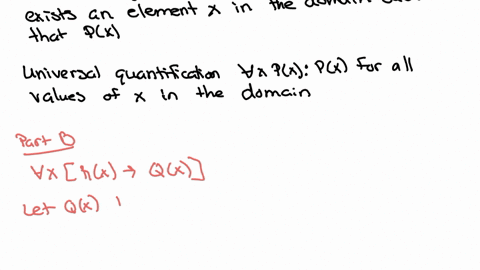 exists an element x in the domain such
that P(x)
Universal quantification ∀x P(x): P(x) for all
values of x in the domain
Part B
∀x [h(x) → Q(x)]
Let Q(x)